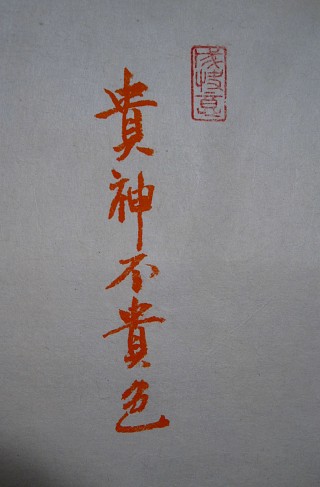 貴神不貴色